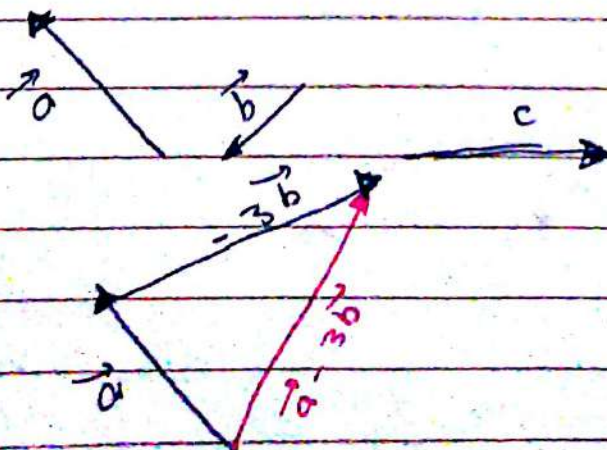 a⃗
b⃗
c
- 3b⃗
a⃗
a⃗ - 3b⃗